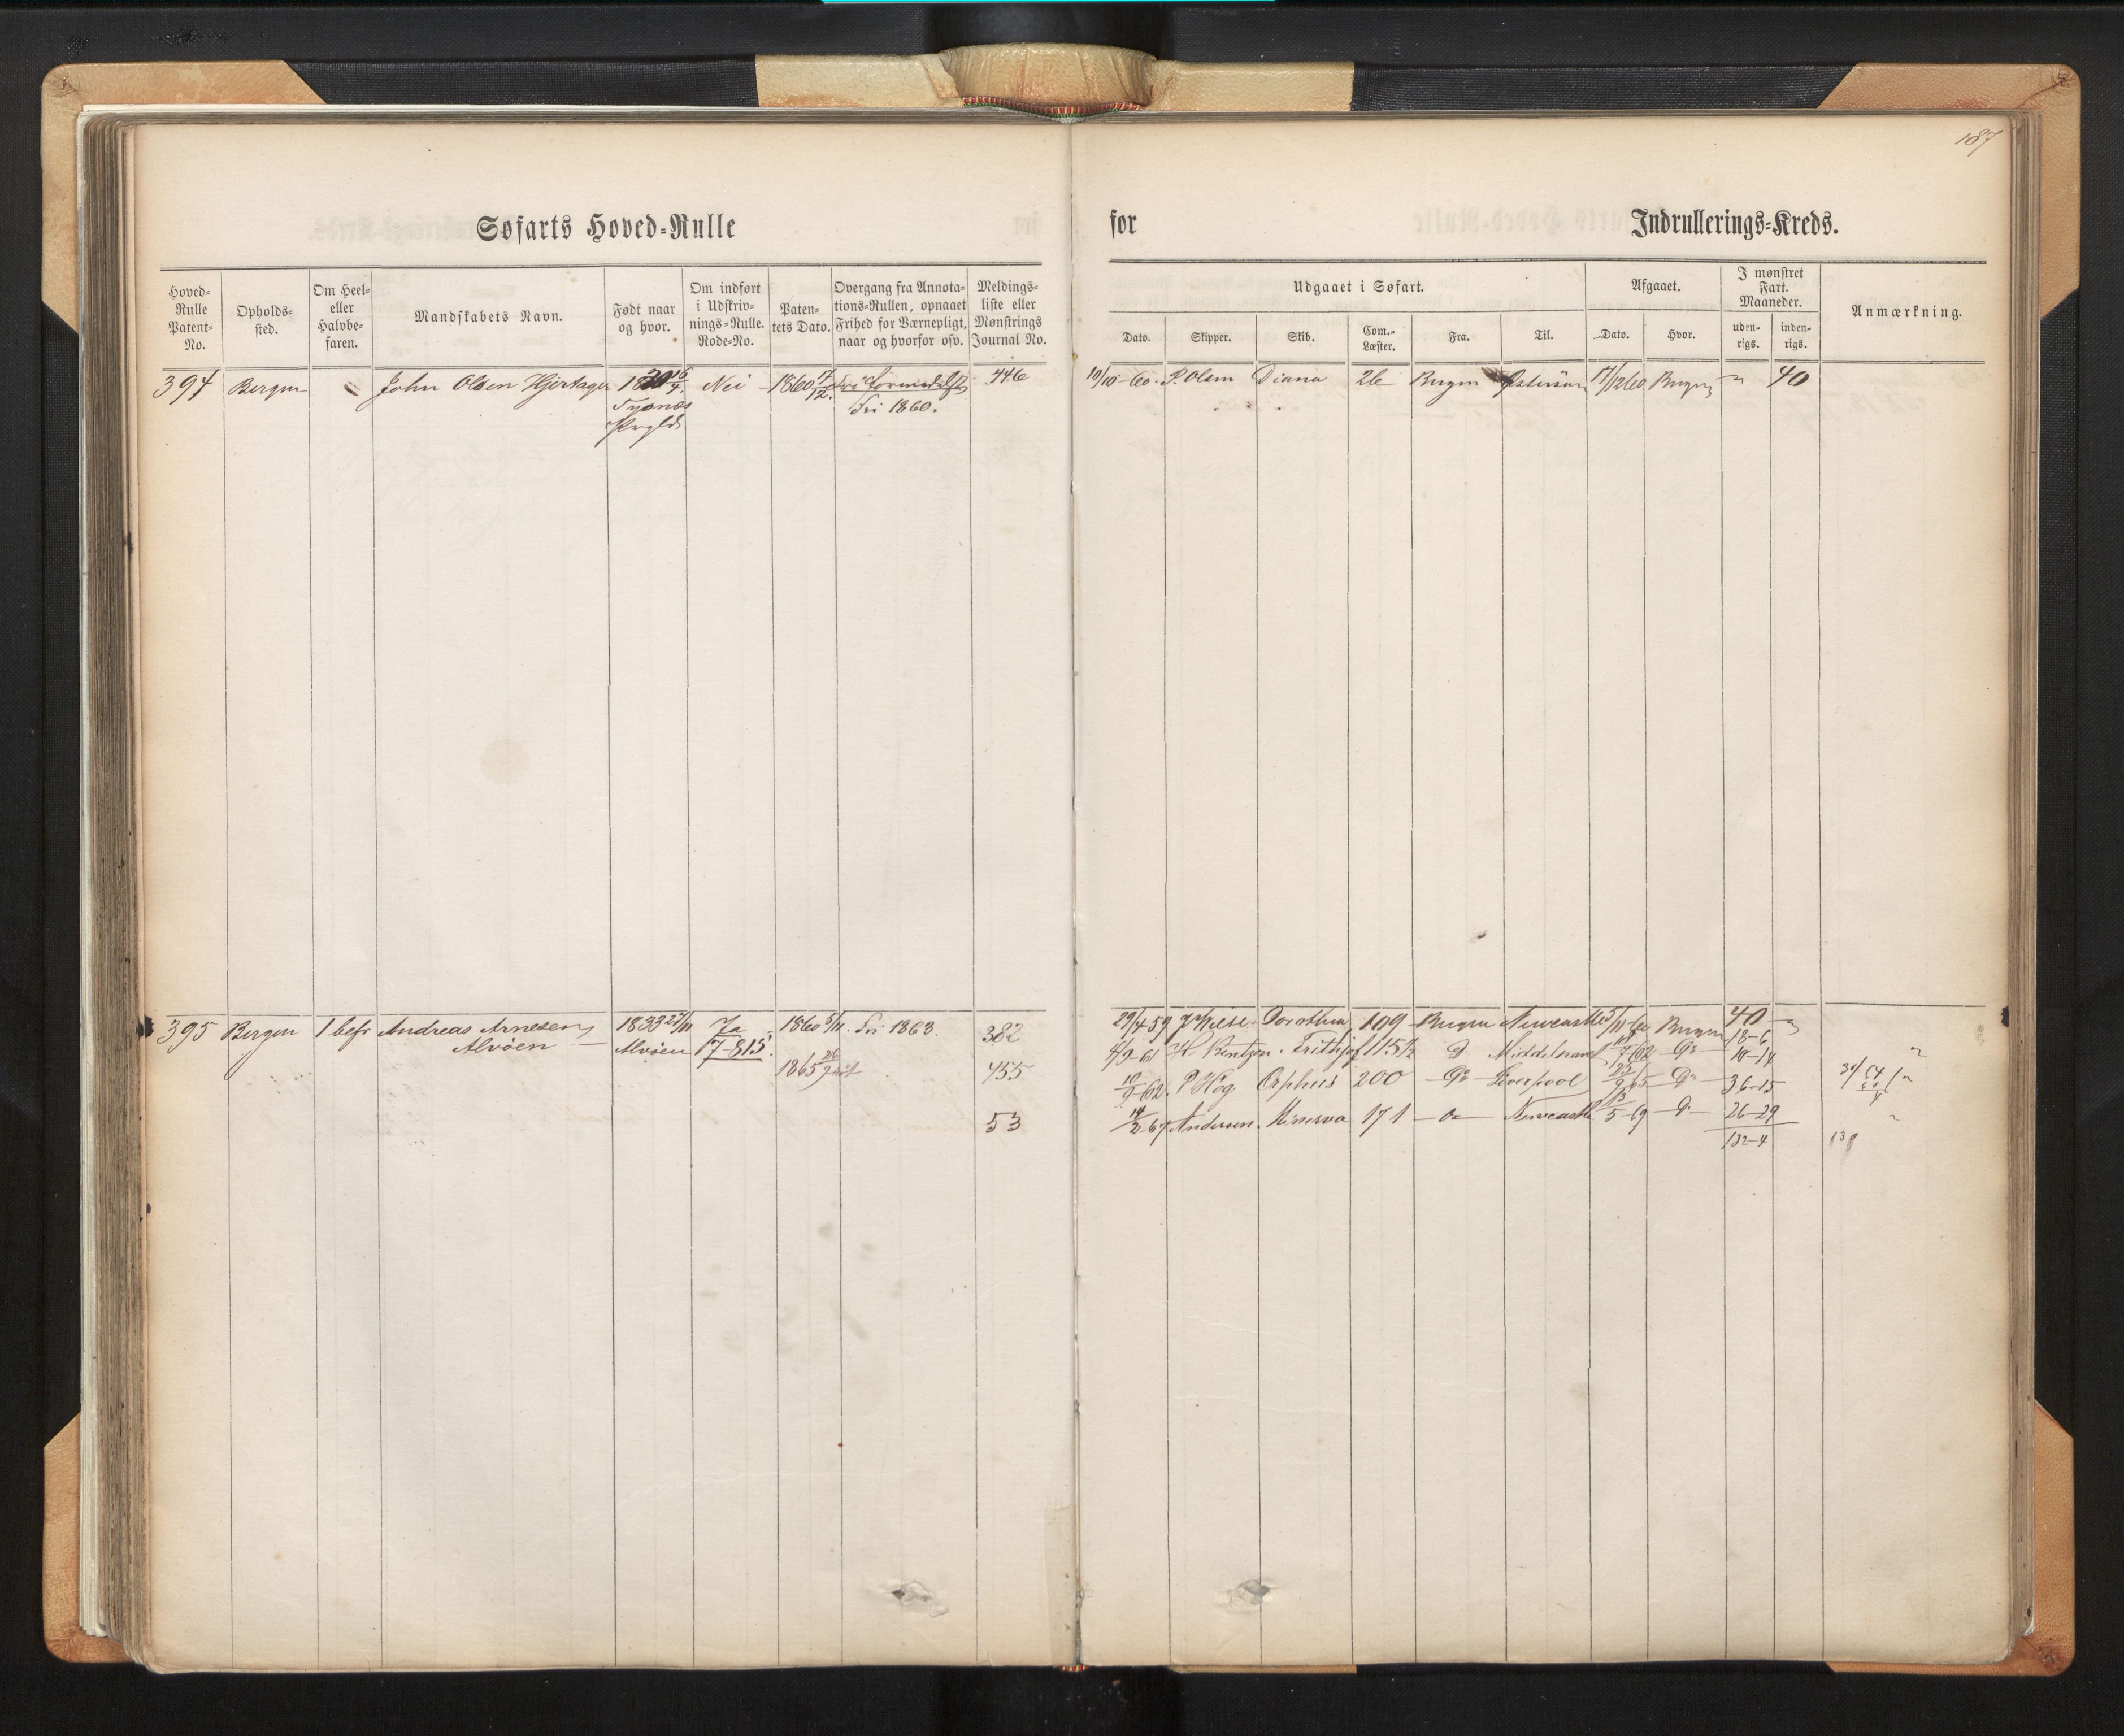 187
Søfarts Hoved-Rulle
for Indrullerings-Kreds.
Hoved-Rulle Patent-No.
Opholds-sted.
Om Heel- eller Halvbe-faren.
Mandskabets Navn.
Født naar og hvor.
Om indført i Udskriv-nings-Rulle. Rode-No.
Paten-tets Dato.
Overgang fra Annota-tions-Rullen, opnaaet Frihed for Værnepligt, naar og hvorfor osv.
Meldings-liste eller Mønstrings Journal No.
Udgaaet i Søfart.
Dato. Skipper. Skib. Com.-Læster. Fra. Til.
Afgaaet.
Dato. Hvor.
I mønstret Fart. Maaneder.
uden-rigs. inden-rigs.
Anmærkning.
394 Bergen John Olsen Hjertager 1820 16/4 Nei 1860 17/12 446
Tysnæs
Fri 1860.
10/10-60. P. Olsen Diana 26 Bergen 17/12 60 Bergen " 40
395 Bergen 1 befr Andreas Arnesen 1833 27/11 Ja 1860 5/11. Fri 1863. 382
Alvöen — Alvöen 17-815
1865 455
53
29/4 59 Dorothea 109 Bergen Newcastle 5/11-60 Bergen 40 "
18-6
4/9-61 H. Bentzen. Frithjof 115½ D 7/62 Do 10-14
10/9-62. P Høg Orpheus 200 Do Liverpool 65 Do 36-15
14/2-67 Andersen. Minerva 171 — Do — Newcastle 13/5-69 Do 26-29
132-4
138